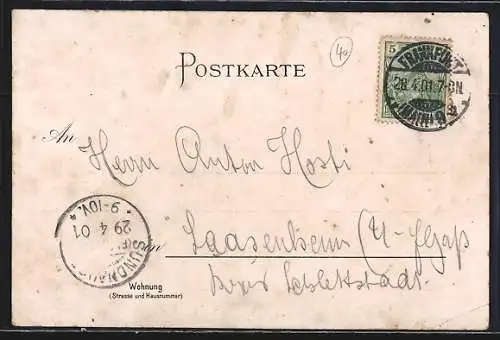 40
POSTKARTE
5
FRANKFURT
28.4.01.7-8N.
(MAIN) 9
An
Herrn Anton Hosti
Saasenheim (U-Elsaß
Bezirk Schlettstadt.
in
SUNDHAUSEN
29 4 01
9-10V.
Wohnung
(Strasse und Hausnummer)